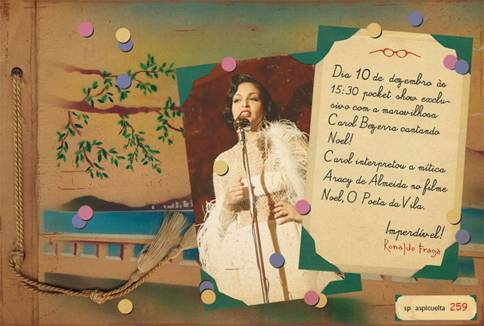 Dia 10 de dezembro às
15:30 pocket show exclu-
sivo com a maravilhosa
Carol Bezerra cantando
Noel!
Carol interpretou a mítica
Aracy de Almeida no filme
Noel, O Poeta da Vila.
Imperdível!
Ronaldo Fraga
sp aspicuelta 259